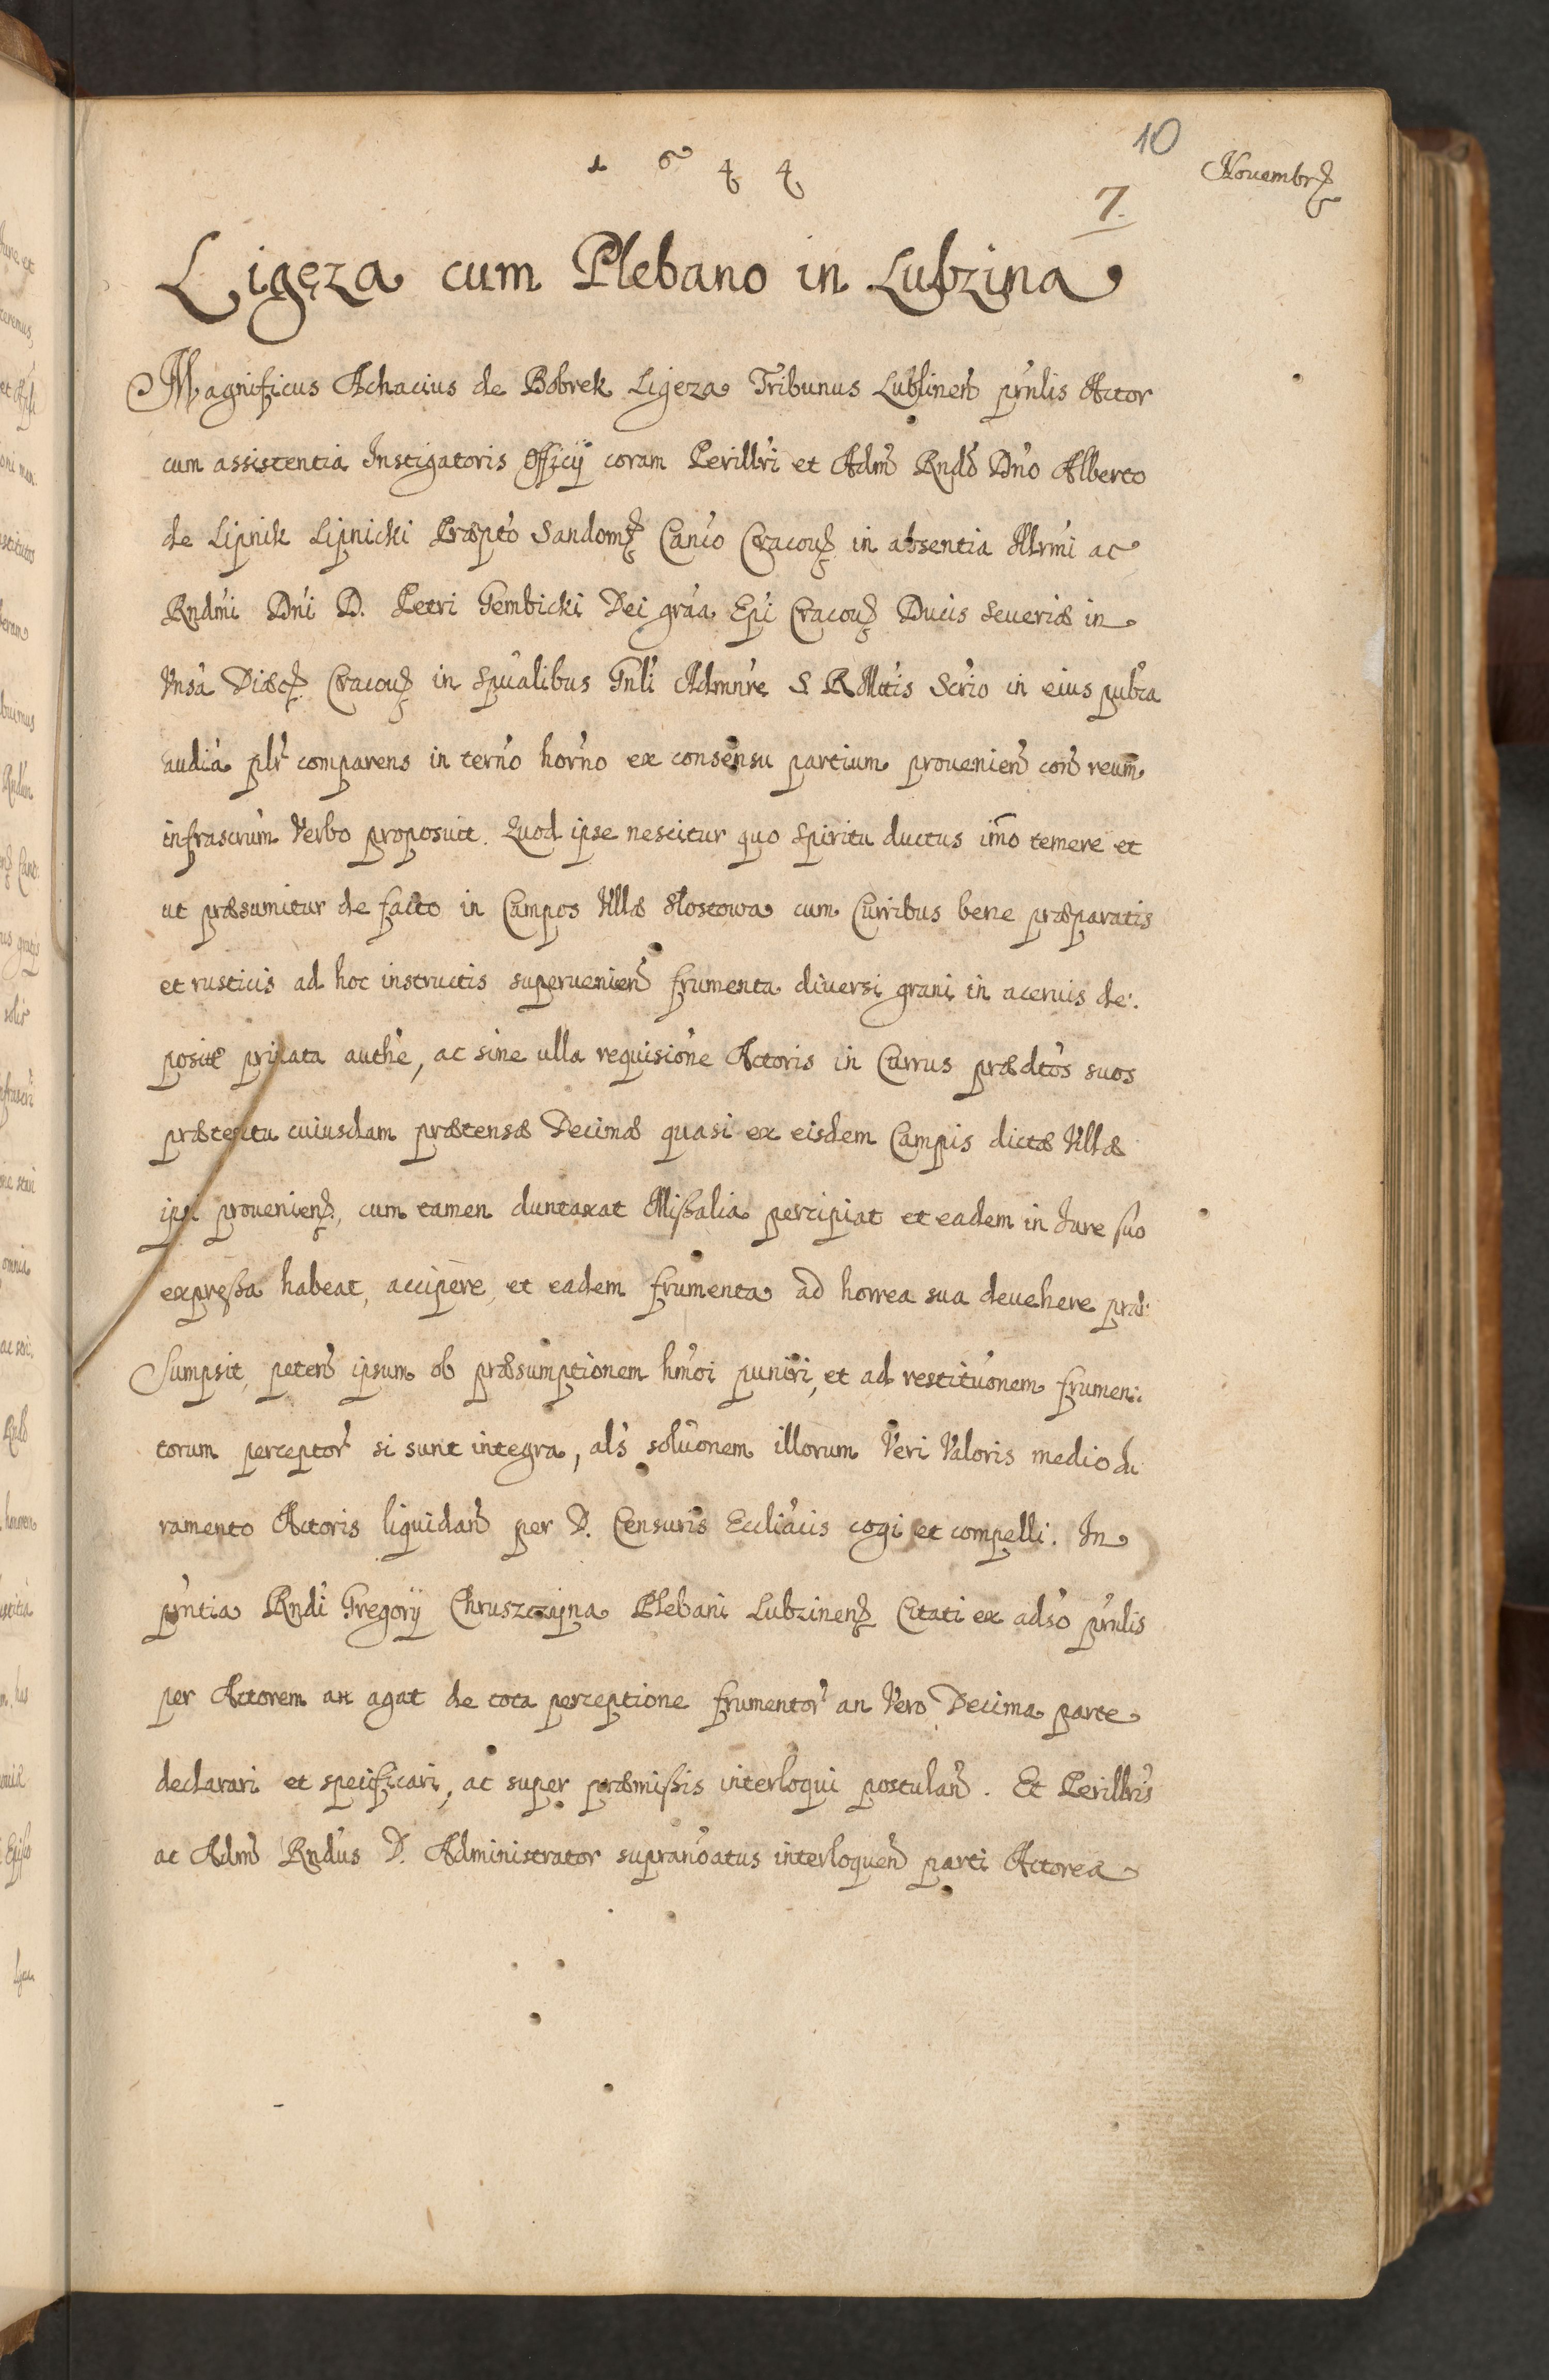 10
1644
Novembr̃
7.
Ligęza cum Plebano in Lubzina
Magnificus Achacius de Bobrek Ligeza Tribunus Lublineñ pr̃nlis Actor
cum assistentia Instigatoris Officÿ coram Perillr̃i et Adm̃ Rñdo Dño Alberto
de Lipnik Lipnicki Præpto Sandom̃ Canĩo Cracoũ in absentia Illrm̃i ac
Rndm̃i Dñi D. Petri Gembicki Dei gr̃a Ep̃i Cracoũ Ducis Seueriæ in
Diæc̃ Cracoũ in Spũalibus Gñli Admnr̃e S R Mttis Scr̃io in eius pubca
audia plr̃ comparens in ter̃no hor̃no ex consensu partium provenieñ coñ reum
infrascr̃um Verbo proposuit. Quod ipse nescitur quo Spiritu ductus im̃o temere et
ut præsumitur de facto in Campos Villæ Mostowa cum Curribus bene præparatis
et rusticis ad hoc instructis supervenieñ frumenta diversi grani in aceruis de:
posita privata authẽ, ac sine ulla requisiõne Actoris in Currus prædtos suos
prætextu cuiusdam prætensæ Decimæ quasi ex eisdem Campis dictæ Villæ
ipsi provenieñ, cum tamen duntaxat Missalia percipiat et eadem in Jure suo
expressa habeat, accipere, et eadem frumenta ad horrea sua devehere præ:
sumpsit, peteñ ipsum ob præsumptionem hm̃oi puniri, et ad restituõnem frumen:
torum perceptor̃ si sunt integra, als̃ soluõnem illorum Veri Valoris medio Ju
ramento Actoris liquidañ per D. Censuris Eccliãcis cogi et compelli. In
pr̃ntia Rñdi Gregorÿ Chruszczyna Plebani Lubzineñ Citati ex adso pr̃nlis
per Actorem an agat de tota perceptione frumentor̃ an Vero Decima parte
declarari et specificari, ac super præmissis interloqui postulañ. Et Perillr̃is
ac Adm̃ Rñdus D. Administrator supranõatus interloqueñ parti Actoreæ